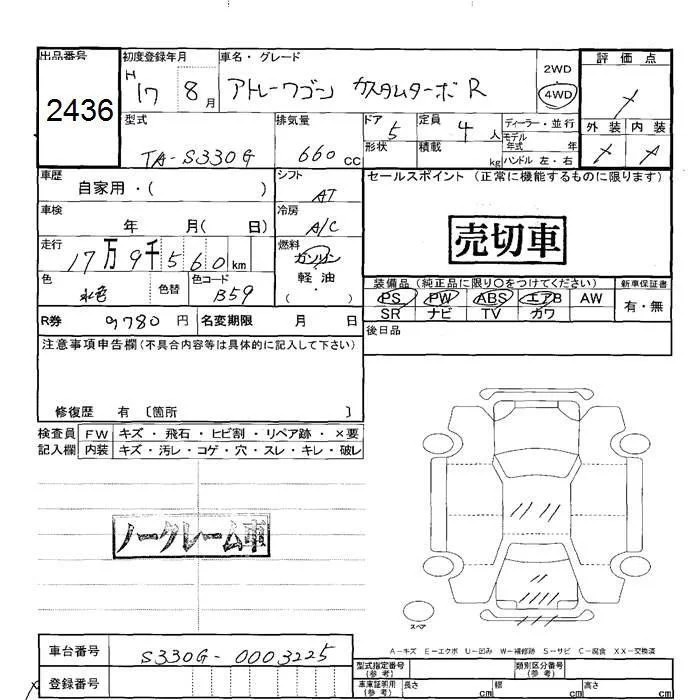 出品番号 初度登録年月 車名・グレード 評価点
2436 H 17 8月 アトレーワゴン カスタムターボR 2WD 4WD
型式 排気量 ドア 5 定員 4人 ディーラー・並行 外装 内装
TA-S330G 660cc 形状 積載 kg モデル年式 年 ハンドル 左・右
車歴 シフト セールスポイント(正常に機能するものに限ります)
自家用・( ) AT
車検 冷房
年 月( 日) A/C 売切車
走行 燃料
17万9千560km ガソリン
色 色替 色コード 軽・油 装備品(純正品に限り○をつけてください) 新車保証書
水色 B59 ( ) PS PW ABS エアB AW 有・無
SR ナビ TV カワ
R券 9780円 名変期限 月 日 後日品
注意事項申告欄(不具合内容等は具体的に記入して下さい)
修復歴 有 〔箇所 〕
検査員 FW キズ・飛石・ヒビ割・リペア跡・×要
記入欄 内装 キズ・汚レ・コゲ・穴・スレ・キレ・破レ
ノークレーム車
スペア
A-キズ E-エクボ U-凹み W-補修跡 S-サビ C-腐食 XX-交換済
車台番号 S330G-0003225
型式指定番号(参考) 類別区分番号(参考)
登録番号 車庫証明用(参考) 長さ cm 幅 cm 高さ cm